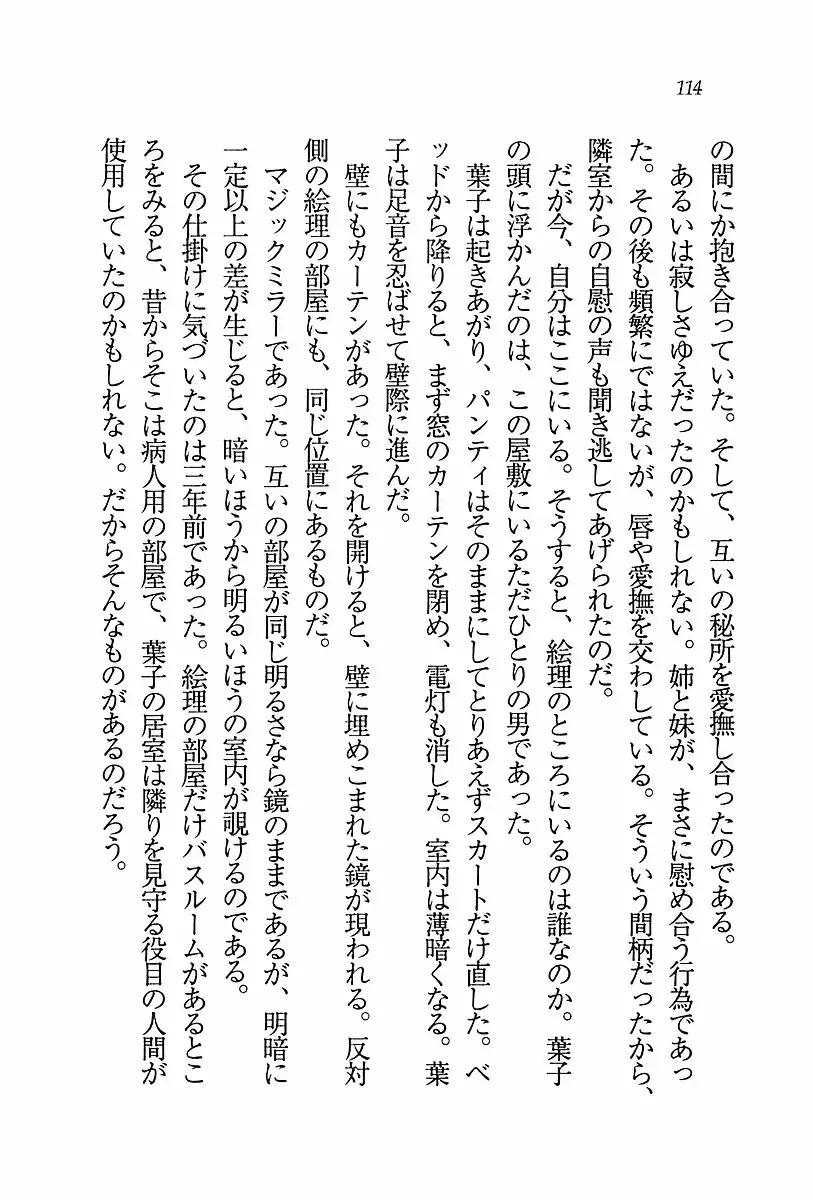 114
の間にか抱き合っていた。そして、互いの秘所を愛撫し合ったのである。
あるいは寂しさゆえだったのかもしれない。姉と妹が、まさに慰め合う行為であっ
た。その後も頻繁にではないが、唇や愛撫を交わしている。そういう間柄だったから、
隣室からの自慰の声も聞き逃してあげられたのだ。
だが今、自分はここにいる。そうすると、絵理のところにいるのは誰なのか。葉子
の頭に浮かんだのは、この屋敷にいるただひとりの男であった。
葉子は起きあがり、パンティはそのままにしてとりあえずスカートだけ直した。ベ
ッドから降りると、まず窓のカーテンを閉め、電灯も消した。室内は薄暗くなる。葉
子は足音を忍ばせて壁際に進んだ。
壁にもカーテンがあった。それを開けると、壁に埋めこまれた鏡が現われる。反対
側の絵理の部屋にも、同じ位置にあるものだ。
マジックミラーであった。互いの部屋が同じ明るさなら鏡のままであるが、明暗に
一定以上の差が生じると、暗いほうから明るいほうの室内が覗けるのである。
その仕掛けに気づいたのは三年前であった。絵理の部屋だけバスルームがあるとこ
ろをみると、昔からそこは病人用の部屋で、葉子の居室は隣りを見守る役目の人間が
使用していたのかもしれない。だからそんなものがあるのだろう。